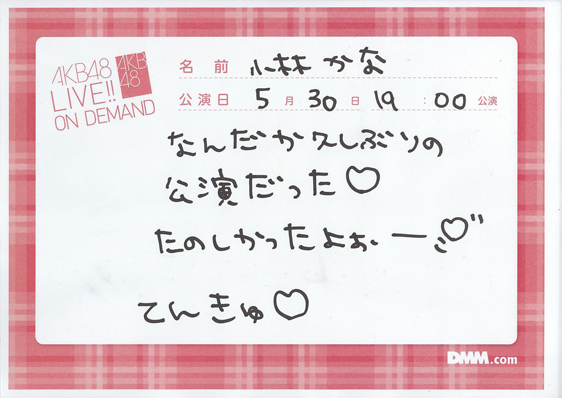 AKB48
LIVE!!
ON DEMAND
AKB
48
名前 小林かな
公演日 5月30日 19:00公演
なんだか久しぶりの
公演だった♡
たのしかったよぉーっ♡"
てんきゅ♡
DMM.com